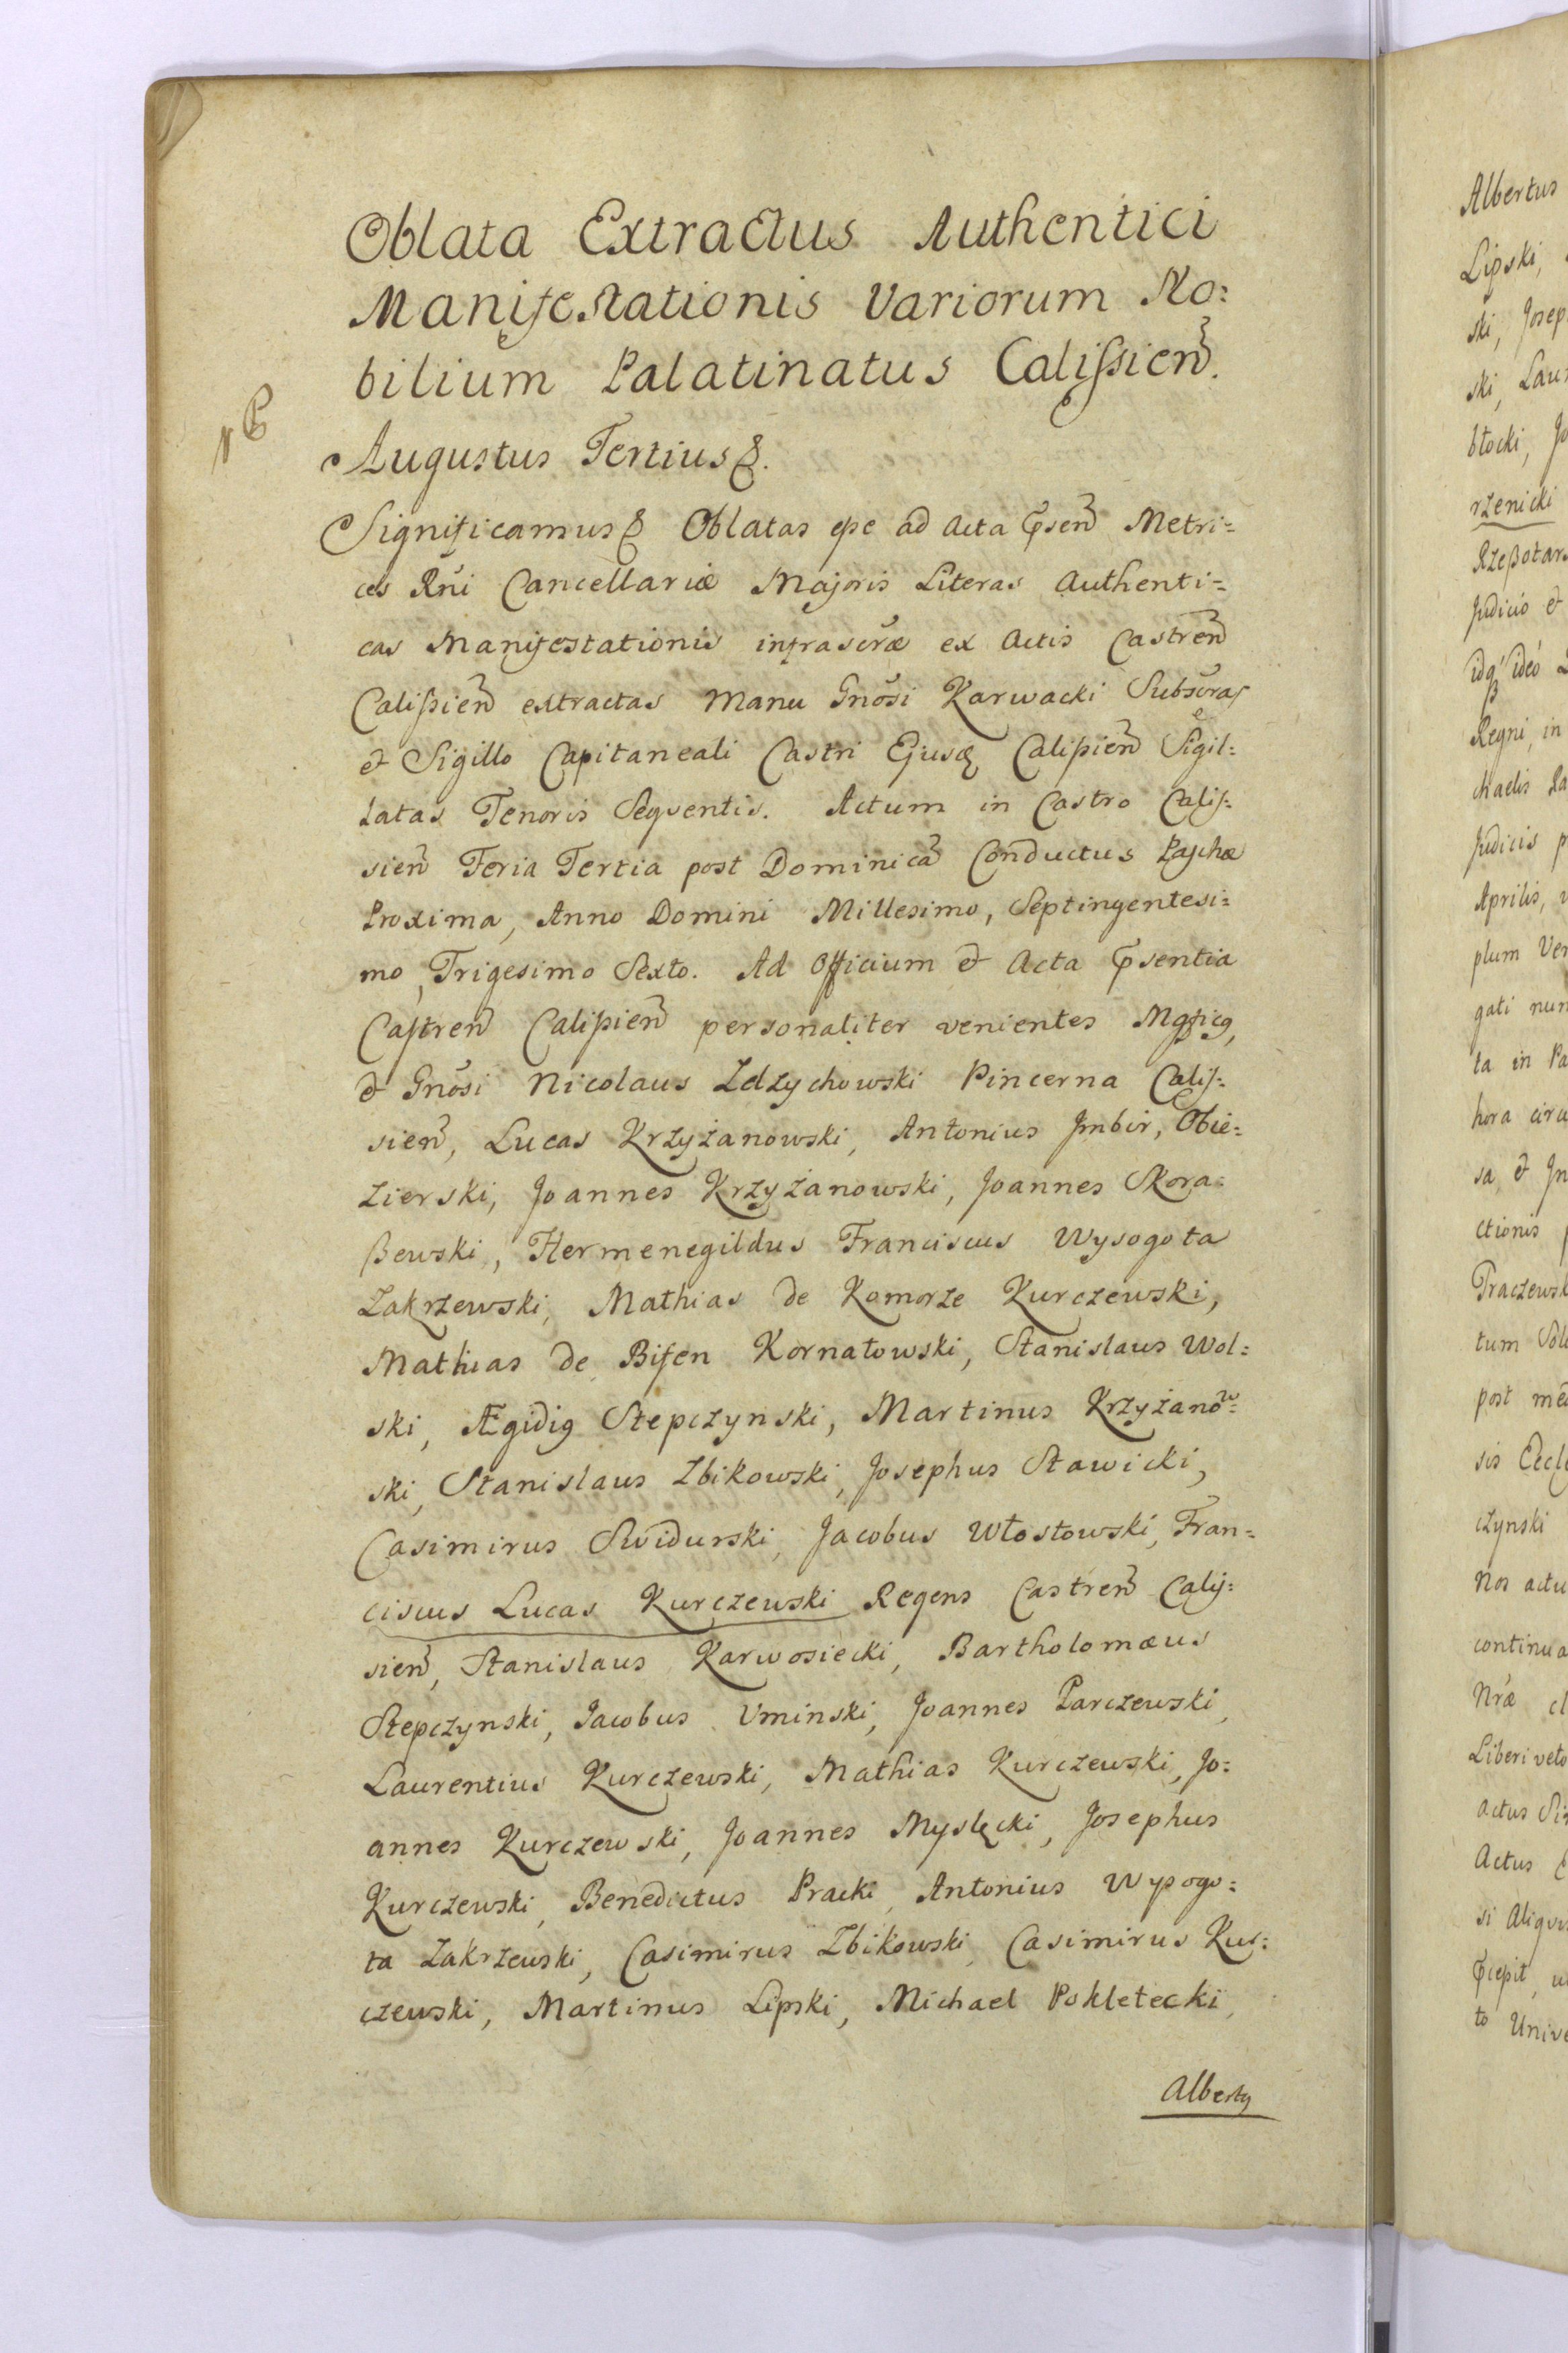 Oblata Extractus Authentici
Manifestationis Variorum No:
bilium Palatinatus Calissień.
NB
Augustus Tertius &.
Significamus & Oblatas esse ad Acta Pñseñ Metri=
ces Rñi Cancellariæ Majoris Literas Authenti=
cas Manifestationis infrascr̃æ ex Actis Castreñ
Calissieñ extractas Manu Gnõsi Karwacki Subscr̃as
& Sigillo Capitaneali Castri Ejusd Calissieñ Sigil:
latas Tenoris Seqventis. Actum in Castro Calis:
sieñ Feria Tertia post Dominicã Conductus Paschæ
Proxima, Anno Domini Millesimo, Septingentesi:
mo, Trigesimo Sexto. Ad Officium & Acta Pñsentia
Castreñ Calissieñ personaliter venientes Mgficg,
& Gnõsi Nicolaus Zdzychowski Pincerna Calis:
sieñ, Lucas Krzyżanowski, Antonius Jmbir, Obie:
zierski, Joannes Krzyżanowski, Joannes Skora:
ßewski, Hermenegildus Franciscus Wysogota
Zakrzewski, Mathias de Komorze Kurczewski,
Mathias de Bifen Kornatowski, Stanislaus Wol:
ski, Ægidig Stepczynski, Martinus Krzyżanõ:
ski, Stanislaus Zbikowski, Josephus Stawicki,
Casimirus Swidurski, Jacobus Włostowski, Fran=
ciscus Lucas Kurczewski Regens Castreñ Calis:
sieñ, Stanislaus Karwosiecki, Bartholomæus
Stepczynski, Jacobus Uminski, Joannes Parczewski,
Laurentius Kurczewski, Mathias Kurczewski, Jo:
annes Kurczewski, Joannes Myslęcki, Josephus
Kurczewski, Benedictus Pracki, Antonius Wysogo:
ta Zakrzewski, Casimirus Zbikowski, Casimirus Kur:
czewski, Martinus Lipski, Michael Pokletecki,
Albertg
Albertus
Lipski,
ski, Josep
ski, Laur
błocki, Jo
rzenicki
Rzeßotars
Judicio &
idq ideó
Regni, in
chaelis
Judicis p
Aprilis, v
plum Ven
gati nun
ta in Pa
hora circ
sa, & Jn
ctionis p
Traczewsk
tum Sol
post med
sis Eccl
czynski
Nos actu
continua
Nræ cl
Liberi veto
actus Si
Actus
si Aliqu
Pcepit, u
to Unive